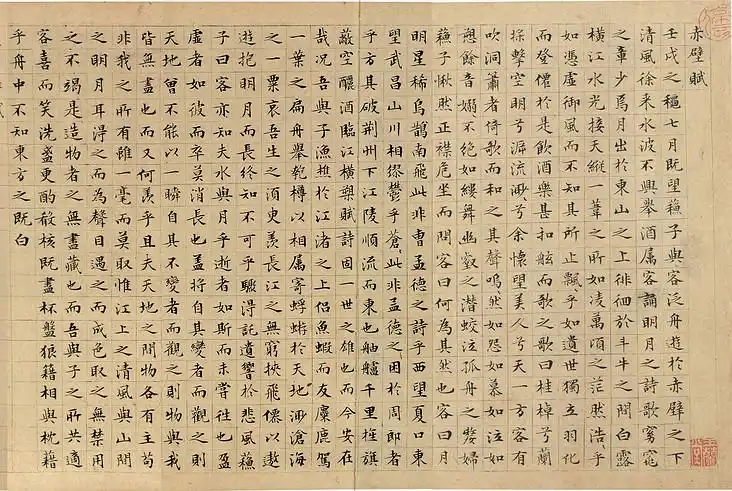 赤壁賦
壬戌之穐七月既望蘓子與客泛舟遊於赤壁之下
清風徐来水波不興舉酒属客誦明月之詩歌窈窕
之章少焉月出於東山之上徘徊於斗牛之間白露
橫江水光接天縱一葦之所如凌萬頃之茫然浩〻乎
如憑虛御風而不知其所止飄〻乎如遺世獨立羽化
而登僊於是飲酒樂甚扣舷而歌之歌曰桂棹兮蘭
槳擊空明兮泝流渺〻兮余懷望美人兮天一方客有
吹洞簫者倚歌而和之其聲嗚〻然如怨如慕如泣如
愬餘音嫋〻不絕如縷舞幽壑之潛蛟泣孤舟之嫠婦
蘓子愀然正襟危坐而問客曰何為其然也客曰月
明星稀烏鵲南飛此非曹孟德之詩乎西望夏口東
望武昌山川相繆鬱乎蒼〻此非孟德之困於周郎者
乎方其破荊州下江陵順流而東也舳艫千里旌旗
蔽空釃酒臨江橫槊賦詩固一世之雄也而今安在
哉況吾與子漁樵於江渚之上侶魚蝦而友麋鹿駕
一葉之扁舟舉匏樽以相属寄蜉蝣於天地渺滄海
之一粟哀吾生之須臾羨長江之無窮挾飛僊以遨
遊抱明月而長終知不可乎驟得託遺響於悲風蘓
子曰客亦知夫水與月乎逝者如斯而未嘗往也盈
虛者如彼而卒莫消長也蓋將自其變者而觀之則
天地曾不能以一瞬自其不變者而觀之則物與我
皆無盡也而又何羨乎且夫天地之間物各有主苟
非我之所有雖一毫而莫取惟江上之清風與山間
之明月耳得之而為聲目遇之而成色取之無禁用
之不竭是造物者之無盡藏也而吾與子之所共適
客喜而笑洗盞更酌殽核既盡杯盤狼籍相與枕藉
乎舟中不知東方之既白